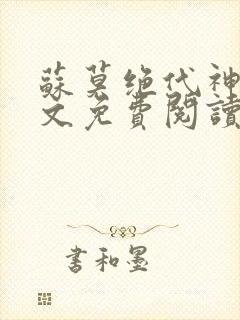 蘇莫绝代神
文免費閱讀
書和墨